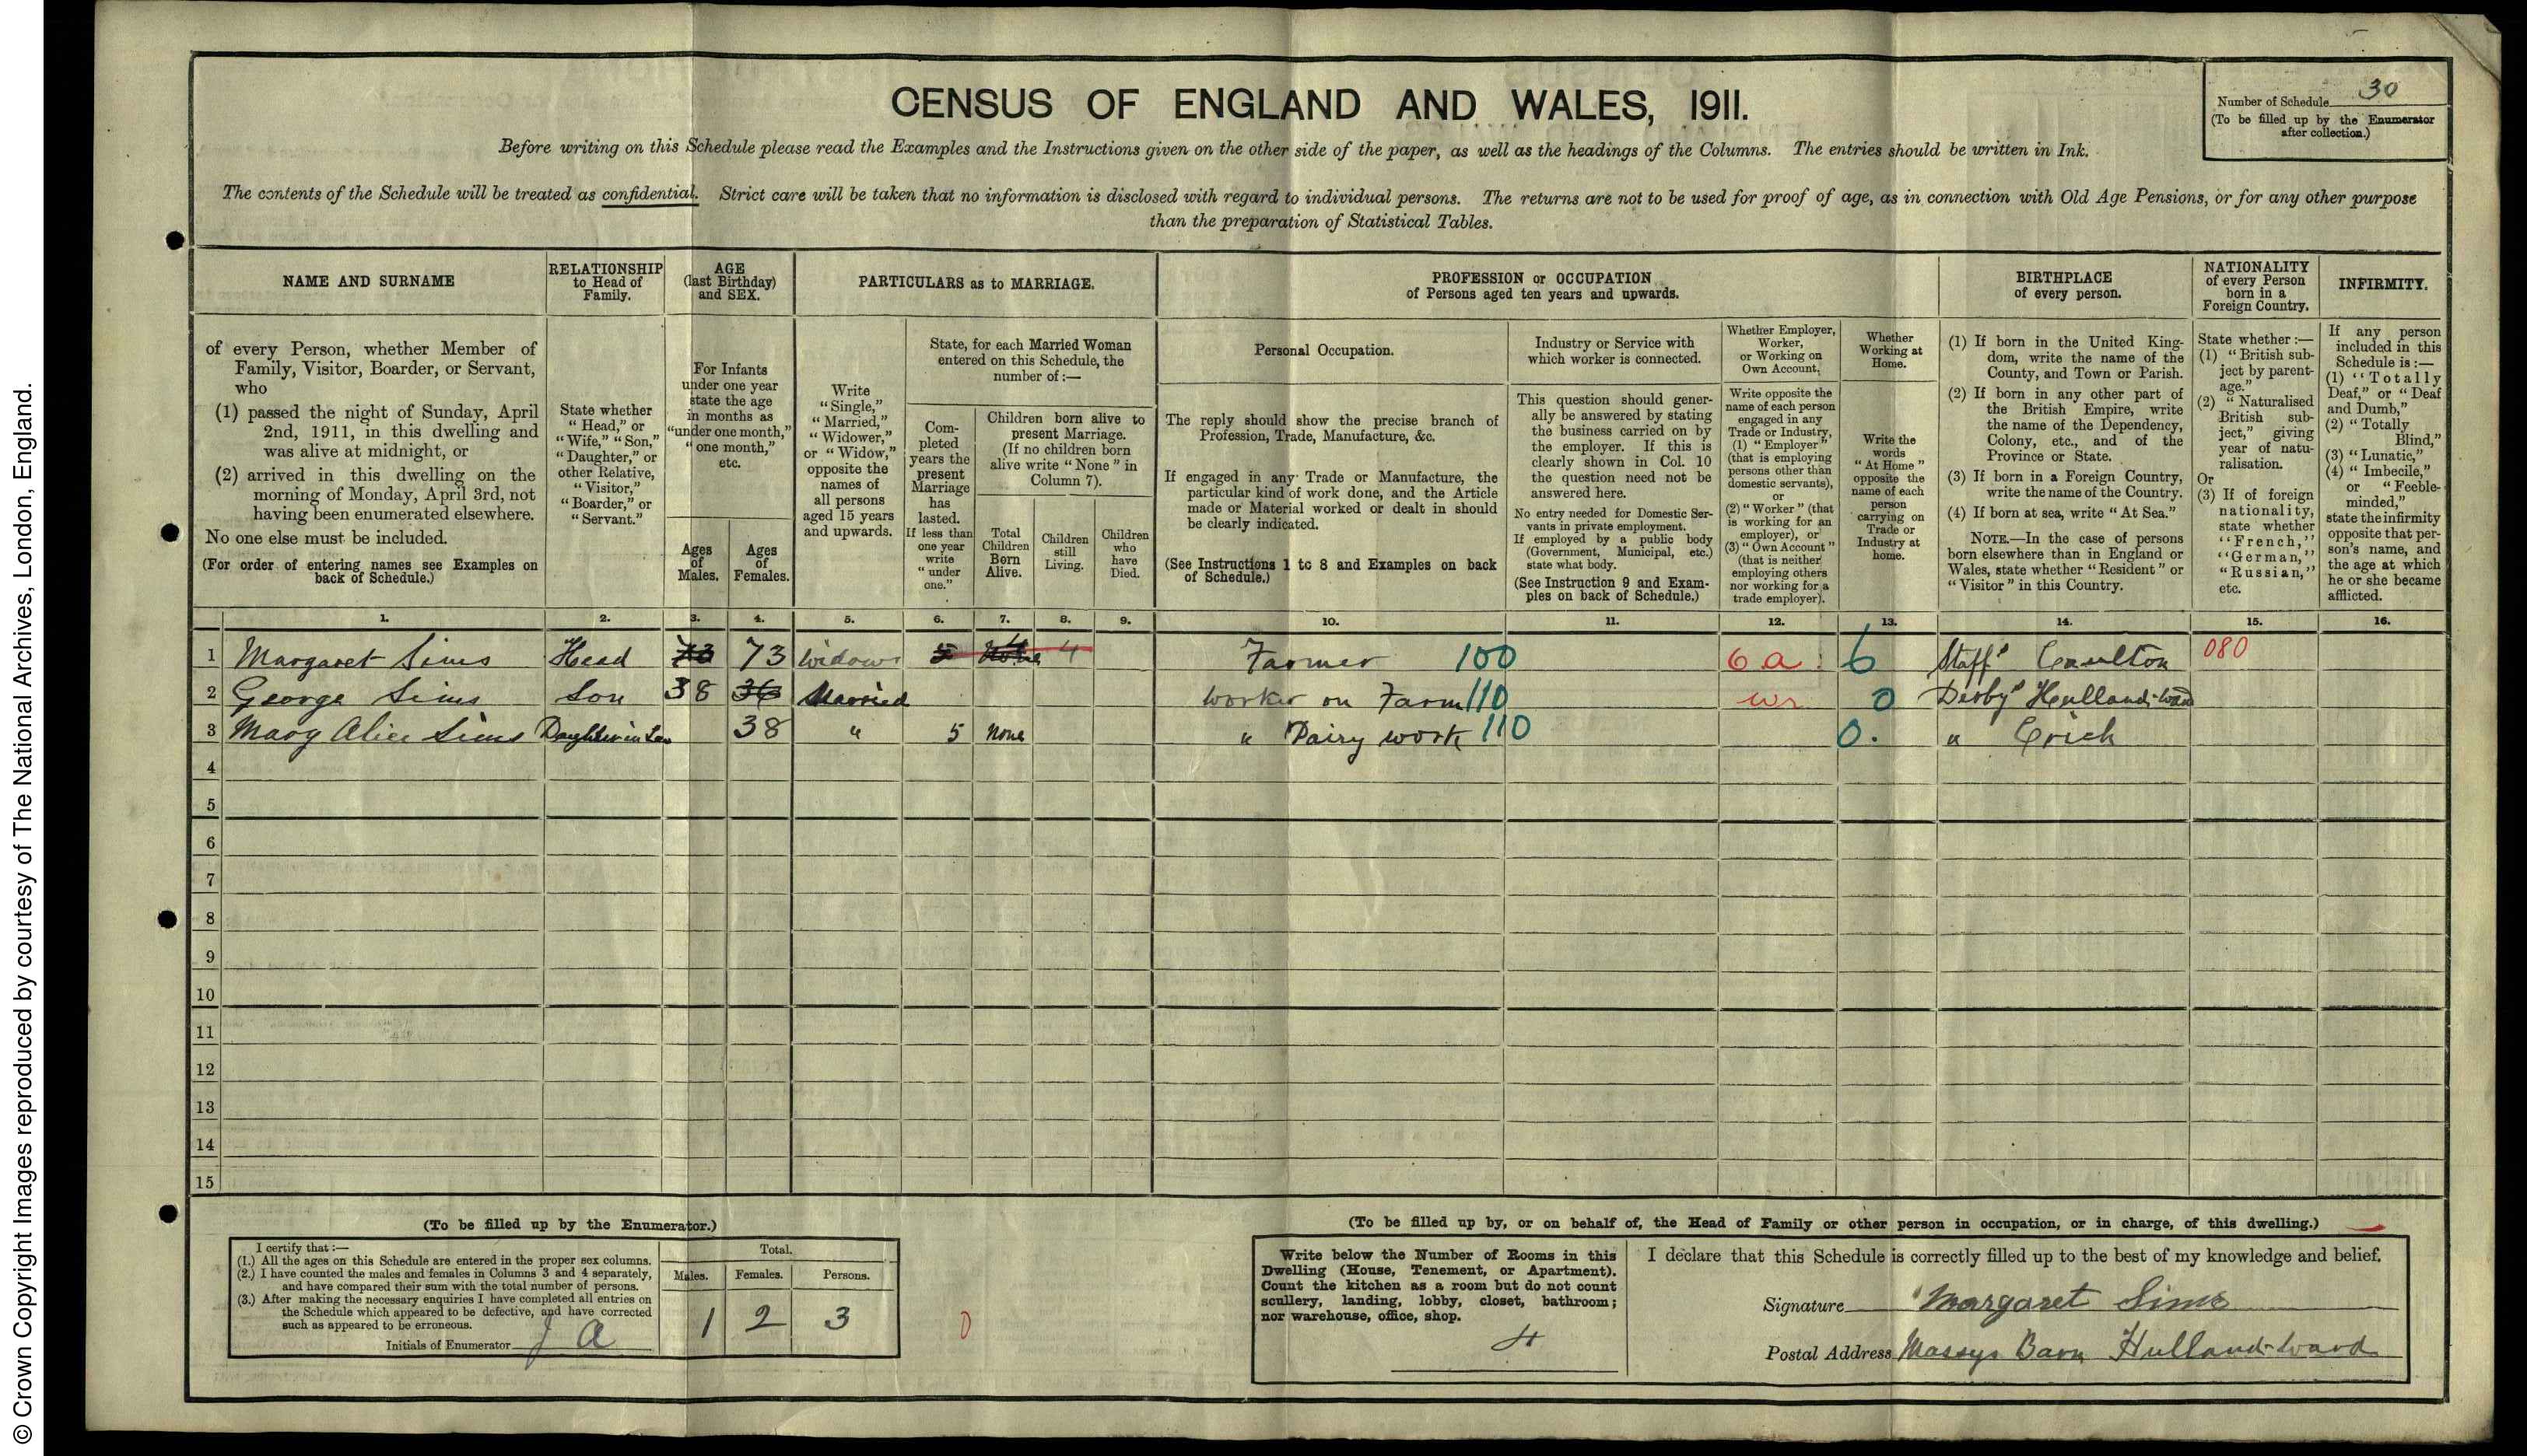 © Crown Copyright Images reproduced by courtesy of The National Archives, London, England.
CENSUS OF ENGLAND AND WALES, 1911.
Number of Schedule 30
(To be filled up by the Enumerator
after collection.)
Before writing on this Schedule please read the Examples and the Instructions given on the other side of the paper, as well as the headings of the Columns. The entries should be written in Ink.
The contents of the Schedule will be treated as confidential. Strict care will be taken that no information is disclosed with regard to individual persons. The returns are not to be used for proof of age, as in connection with Old Age Pensions, or for any other purpose
than the preparation of Statistical Tables.
NAME AND SURNAME
of every Person, whether Member of
Family, Visitor, Boarder, or Servant,
who
(1) passed the night of Sunday, April
2nd, 1911, in this dwelling and
was alive at midnight, or
(2) arrived in this dwelling on the
morning of Monday, April 3rd, not
having been enumerated elsewhere.
No one else must be included.
(For order of entering names see Examples on
back of Schedule.)
RELATIONSHIP
to Head of
Family.
State whether
"Head," or
"Wife," "Son,"
"Daughter," or
other Relative,
"Visitor,"
"Boarder," or
"Servant."
AGE
(last Birthday)
and SEX.
For Infants
under one year
state the age
in months as
"under one month,"
"one month,"
etc.
Ages
of
Males.
Ages
of
Females.
PARTICULARS as to MARRIAGE.
Write
"Single,"
"Married,"
"Widower,"
or "Widow,"
opposite the
names of
all persons
aged 15 years
and upwards.
State, for each Married Woman
entered on this Schedule, the
number of:—
Com-
pleted
years the
present
Marriage
has
lasted.
If less than
one year
write
"under
one."
Children born alive to
present Marriage.
(If no children born
alive write "None" in
Column 7).
Total
Children
Born
Alive.
Children
still
Living.
Children
who
have
Died.
PROFESSION or OCCUPATION
of Persons aged ten years and upwards.
Personal Occupation.
The reply should show the precise branch of
Profession, Trade, Manufacture, &c.
If engaged in any Trade or Manufacture, the
particular kind of work done, and the Article
made or Material worked or dealt in should
be clearly indicated.
(See Instructions 1 to 8 and Examples on back
of Schedule.)
Industry or Service with
which worker is connected.
This question should gener-
ally be answered by stating
the business carried on by
the employer. If this is
clearly shown in Col. 10
the question need not be
answered here.
No entry needed for Domestic Ser-
vants in private employment.
If employed by a public body
(Government, Municipal, etc.)
state what body.
(See Instruction 9 and Exam-
ples on back of Schedule.)
Whether Employer,
Worker,
or Working on
Own Account.
Write opposite the
name of each person
engaged in any
Trade or Industry,
(1) "Employer"
(that is employing
persons other than
domestic servants),
or
(2) "Worker" (that
is working for an
employer), or
(3) "Own Account"
(that is neither
employing others
nor working for a
trade employer).
Whether
Working at
Home.
Write the
words
"At Home"
opposite the
name of each
person
carrying on
Trade or
Industry at
home.
BIRTHPLACE
of every person.
(1) If born in the United King-
dom, write the name of the
County, and Town or Parish.
(2) If born in any other part of
the British Empire, write
the name of the Dependency,
Colony, etc., and of the
Province or State.
(3) If born in a Foreign Country,
write the name of the Country.
(4) If born at sea, write "At Sea."
NOTE.—In the case of persons
born elsewhere than in England or
Wales, state whether "Resident" or
"Visitor" in this Country.
NATIONALITY
of every Person
born in a
Foreign Country.
State whether:—
(1) "British sub-
ject by parent-
age."
(2) "Naturalised
British sub-
ject," giving
year of natu-
ralisation.
Or
(3) If of foreign
nationality,
state whether
"French,"
"German,"
"Russian,"
etc.
INFIRMITY.
If any person
included in this
Schedule is:—
(1) "Totally
Deaf," or "Deaf
and Dumb,"
(2) "Totally
Blind,"
(3) "Lunatic,"
(4) "Imbecile,"
or "Feeble-
minded,"
state the infirmity
opposite that per-
son's name, and
the age at which
he or she became
afflicted.
1. 2. 3. 4. 5. 6. 7. 8. 9. 10. 11. 12. 13. 14. 15. 16.
1 Margaret Sims Head 73 73 Widow 5 None 4 Farmer 100 6 a 6 Staff's Caulton 080
2 George Sims Son 38 36 Married Worker on Farm 110 wr 0 Derby's Hulland-Ward
3 Mary Alice Sims Daughter in Law 38 " 5 None " Dairy work 110 0. " Crich
4
5
6
7
8
9
10
11
12
13
14
15
(To be filled up by the Enumerator.)
I certify that:—
(1.) All the ages on this Schedule are entered in the proper sex columns.
(2.) I have counted the males and females in Columns 3 and 4 separately,
and have compared their sum with the total number of persons.
(3.) After making the necessary enquiries I have completed all entries on
the Schedule which appeared to be defective, and have corrected
such as appeared to be erroneous.
Initials of Enumerator J A
Total.
Males. Females. Persons.
1 2 3
0
(To be filled up by, or on behalf of, the Head of Family or other person in occupation, or in charge, of this dwelling.)
Write below the Number of Rooms in this
Dwelling (House, Tenement, or Apartment).
Count the kitchen as a room but do not count
scullery, landing, lobby, closet, bathroom;
nor warehouse, office, shop.
4
I declare that this Schedule is correctly filled up to the best of my knowledge and belief.
Signature Margaret Sims
Postal Address Massys Barn Hulland-Ward